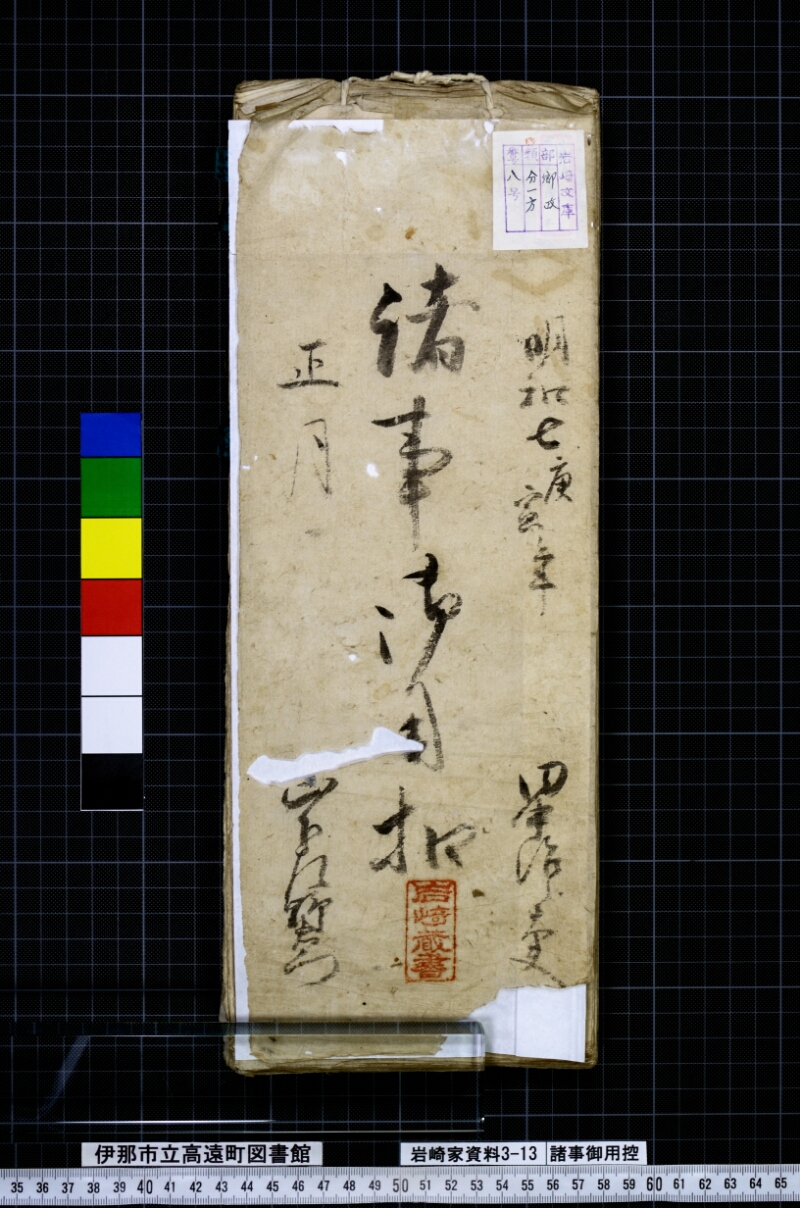 岩崎文庫
部 郷政
類 分一方
番 八号
明和七庚寅年
諸事御用扣
正月
岩崎蔵書
伊那市立高遠町図書館
岩崎家資料3-13 諸事御用控
35 36 37 38 39 40 41 42 43 44 45 46 47 48 49 50 51 52 53 54 55 56 57 58 59 60 61 62 63 64 65